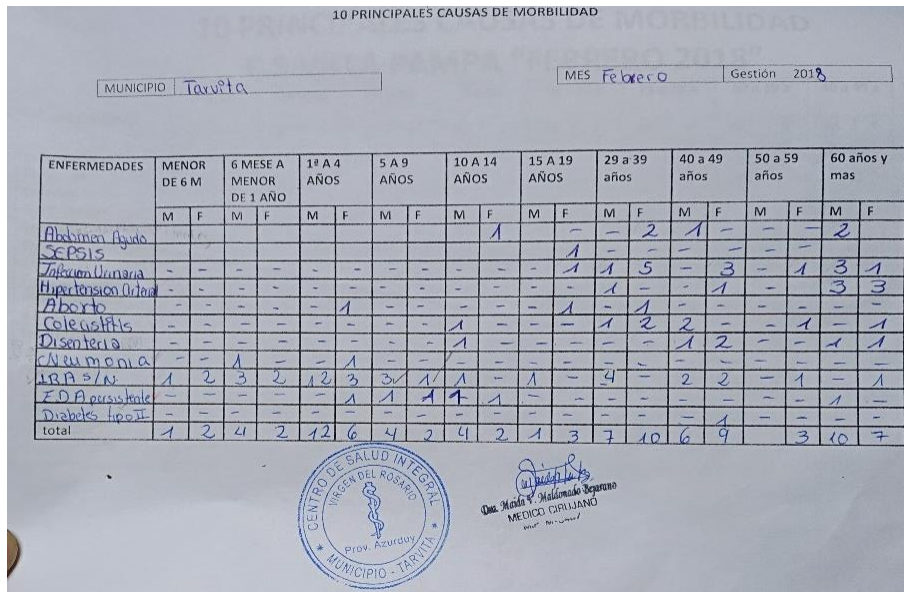 10 PRINCIPALES CAUSAS DE MORBILIDAD
MUNICIPIO Tarvita MES Febrero Gestión 2018
ENFERMEDADES MENOR DE 6 M 6 MESE A MENOR DE 1 AÑO 1ª A 4 AÑOS 5 A 9 AÑOS 10 A 14 AÑOS 15 A 19 AÑOS 29 a 39 años 40 a 49 años 50 a 59 años 60 años y mas
M F M F M F M F M F M F M F M F M F M F
Abdomen Agudo 1 - - 2 1 - - - 2
SEPSIS 1 - - - - - -
Infeccion Urinaria - - - - - - - - - - - 1 1 5 - 3 - 1 3 1
Hipertension Arterial - - - - - - - - - - - - 1 - - 1 - 3 3
Aborto - - - - - 1 - - - - - 1 - 1 - - - - - -
Colecistitis - - - - - - - - 1 - - - 1 2 2 - - 1 - 1
Disenteria - - - - - - - - 1 - - - - - 1 2 - - 1 1
Neumonia - - 1 - - 1 - - - - - - - - - - - - - -
IRA S/N 1 2 3 2 12 3 3 1 1 - 1 - 4 - 2 2 - 1 - 1
E.D.A persistente - - - - - 1 1 1 1 1 - - - - - - - - 1 -
Diabetes tipo II - - - - - - - - - - - - - - - 1 - - - -
total 1 2 4 2 12 6 4 2 4 2 1 3 7 10 6 9 3 10 7
CENTRO DE SALUD INTEGRAL
VIRGEN DEL ROSARIO
Prov. Azurduy
MUNICIPIO - TARVITA
Dra. Maida V. Maldonado Bejarano
MEDICO CIRUJANO